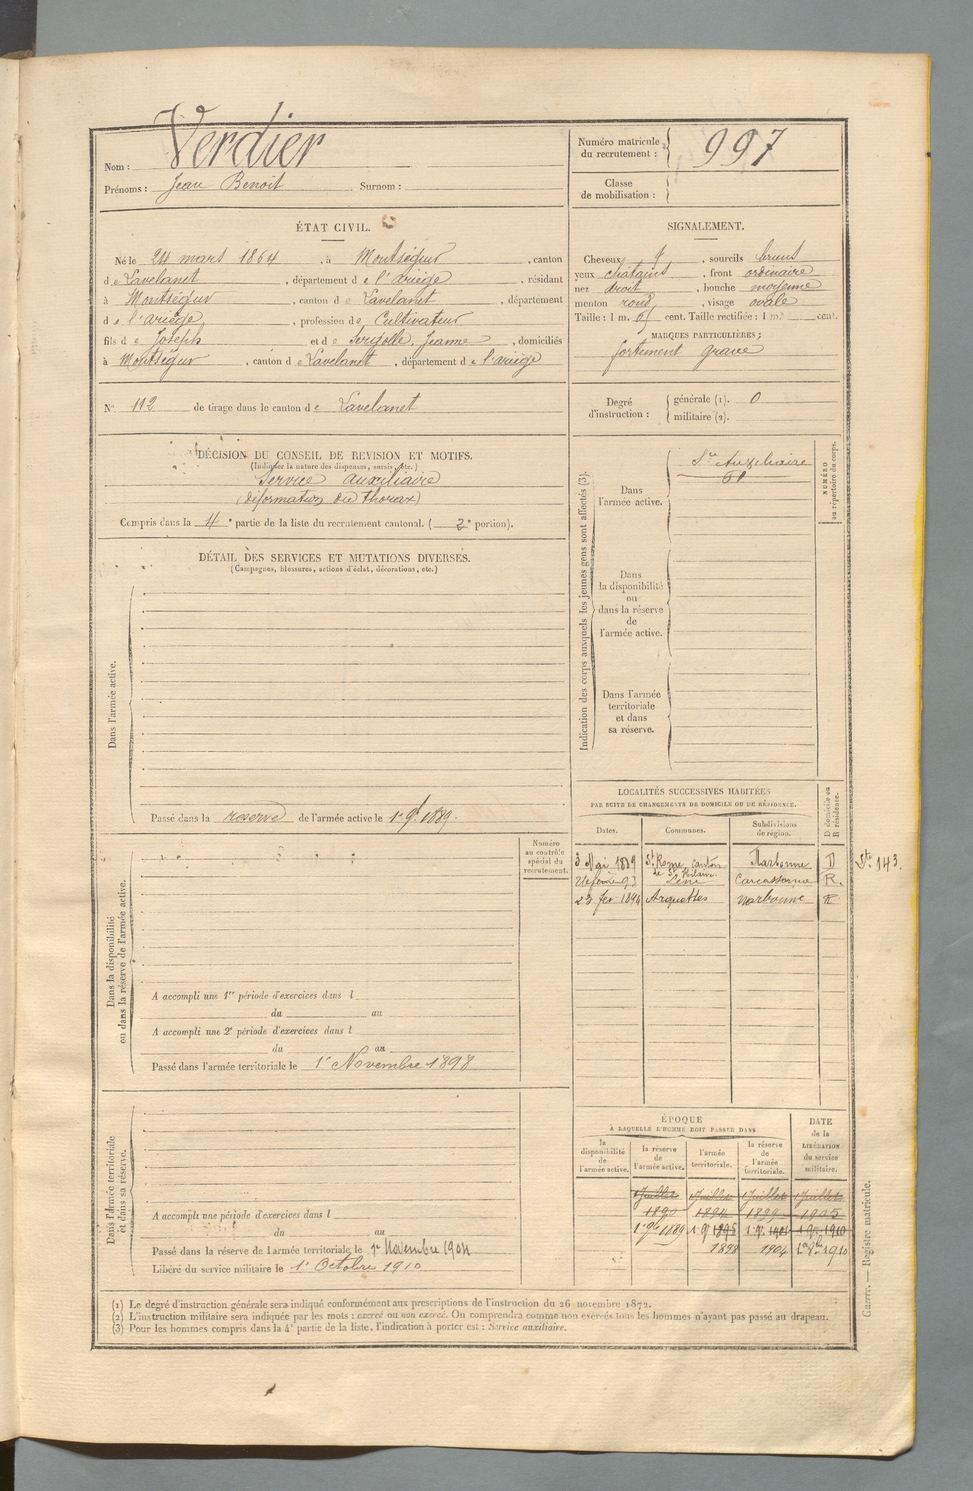 Nom : Verdier
Prénoms : Jean Benoit Surnom :
Numéro matricule du recrutement : 997
Classe de mobilisation :
ÉTAT CIVIL.
Né le 24 mars 1864, à Montségur, canton
de Lavelanet, département de l'ariège, résidant
à Montségur, canton de Lavelanet, département
de l'ariège, profession de Cultivateur
fils de Joseph et de Jeanne, domiciliés
à Montségur, canton de Lavelanet, département de l'ariège
N° 112 de tirage dans le canton de Lavelanet
SIGNALEMENT.
Cheveux, sourcils bruns
yeux chatains, front ordinaire
nez droit, bouche moyenne
menton rond, visage ovale
Taille : 1 m. cent. Taille rectifiée : 1 m. cent.
MARQUES PARTICULIÈRES :
fortement gravé
Degré d'instruction : générale (1). 0
militaire (2).
DÉCISION DU CONSEIL DE REVISION ET MOTIFS.
(Indiquer la nature des dispenses, sursis, etc.)
Service auxiliaire
(déformation du thorax)
Compris dans la 4e partie de la liste du recrutement cantonal. (2e portion).
DÉTAIL DES SERVICES ET MUTATIONS DIVERSES.
(Campagnes, blessures, actions d'éclat, décorations, etc.)
Dans l'armée active.
Passé dans la reserve de l'armée active le 1er 9bre 1889.
Indication des corps auxquels les jeunes gens sont affectés (3).
NUMÉRO au répertoire du corps.
Dans l'armée active.
Sce Auxiliaire
Dans la disponibilité ou dans la réserve de l'armée active.
Dans l'armée territoriale et dans sa réserve.
LOCALITÉS SUCCESSIVES HABITÉES
PAR SUITE DE CHANGEMENTS DE DOMICILE OU DE RÉSIDENCE.
Dates. Communes. Subdivisions de région. D domicile ou R résidence.
3 Mai 1889 canton de St Hilaire Narbonne D
Carcassonne R.
23 fev. 1894 Arquettes Narbonne R
Numéro au contrôle spécial du recrutement.
Dans la disponibilité ou dans la réserve de l'armée active.
A accompli une 1re période d'exercices dans l
du au
A accompli une 2e période d'exercices dans l
du au
Passé dans l'armée territoriale le 1er Novembre 1898
Dans l'armée territoriale et dans sa réserve.
A accompli une période d'exercices dans l
du au
Passé dans la réserve de l'armée territoriale le 1er Novembre 1904
Libéré du service militaire le 1er Octobre 1910
ÉPOQUE
À LAQUELLE L'HOMME DOIT PASSER DANS
la disponibilité de l'armée active. la réserve de l'armée active. l'armée territoriale. la réserve de l'armée territoriale. DATE de la LIBÉRATION du service militaire.
1 Juillet 1 Juillet 1 Juillet 1 Juillet
1890 1894 1899 1905
1er 9bre 1889
1898 1904 1910
Guerre. — Registre matricule.
(1) Le degré d'instruction générale sera indiqué conformément aux prescriptions de l'instruction du 26 novembre 1872.
(2) L'instruction militaire sera indiquée par les mots : exercé ou non exercé. On comprendra comme non exercés tous les hommes n'ayant pas passé au drapeau.
(3) Pour les hommes compris dans la 4e partie de la liste, l'indication à porter est : Service auxiliaire.